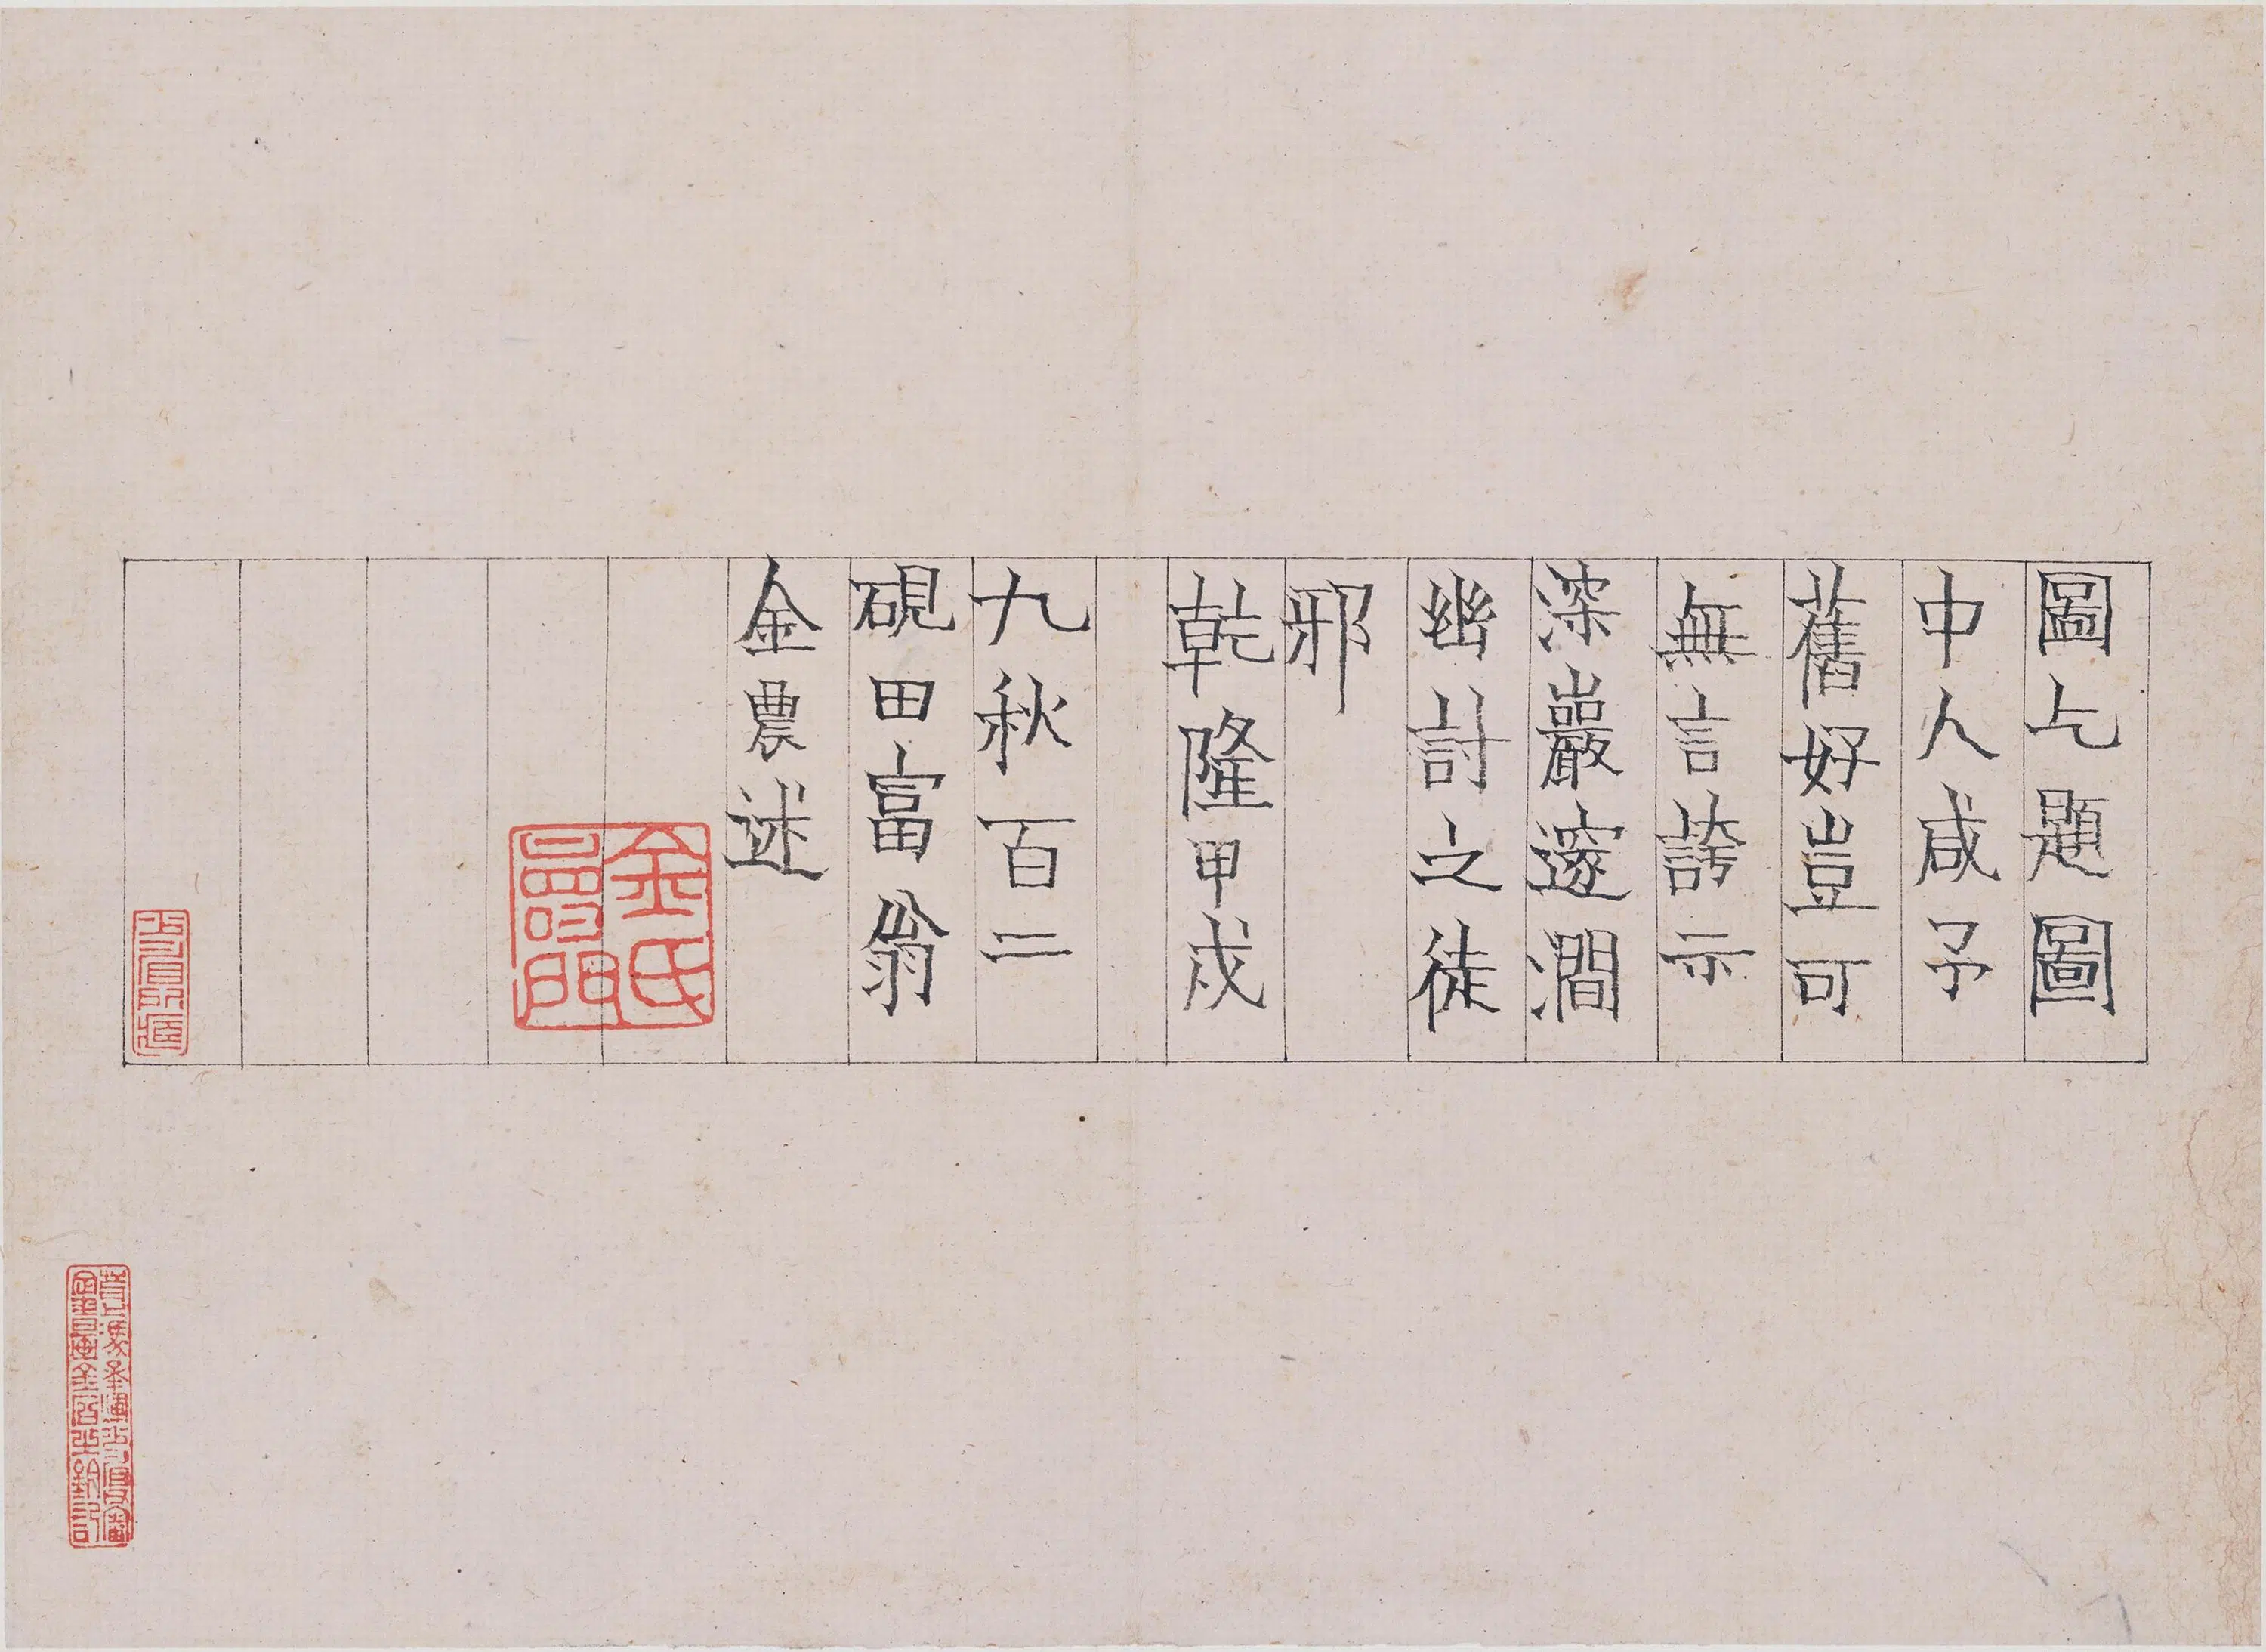 圖上題圖
中人咸予
舊好豈可
無言誇示
深巖邃澗
幽討之徒
邪
乾隆甲戌
九秋百二
硯田富翁
金農述
金氏
壽門